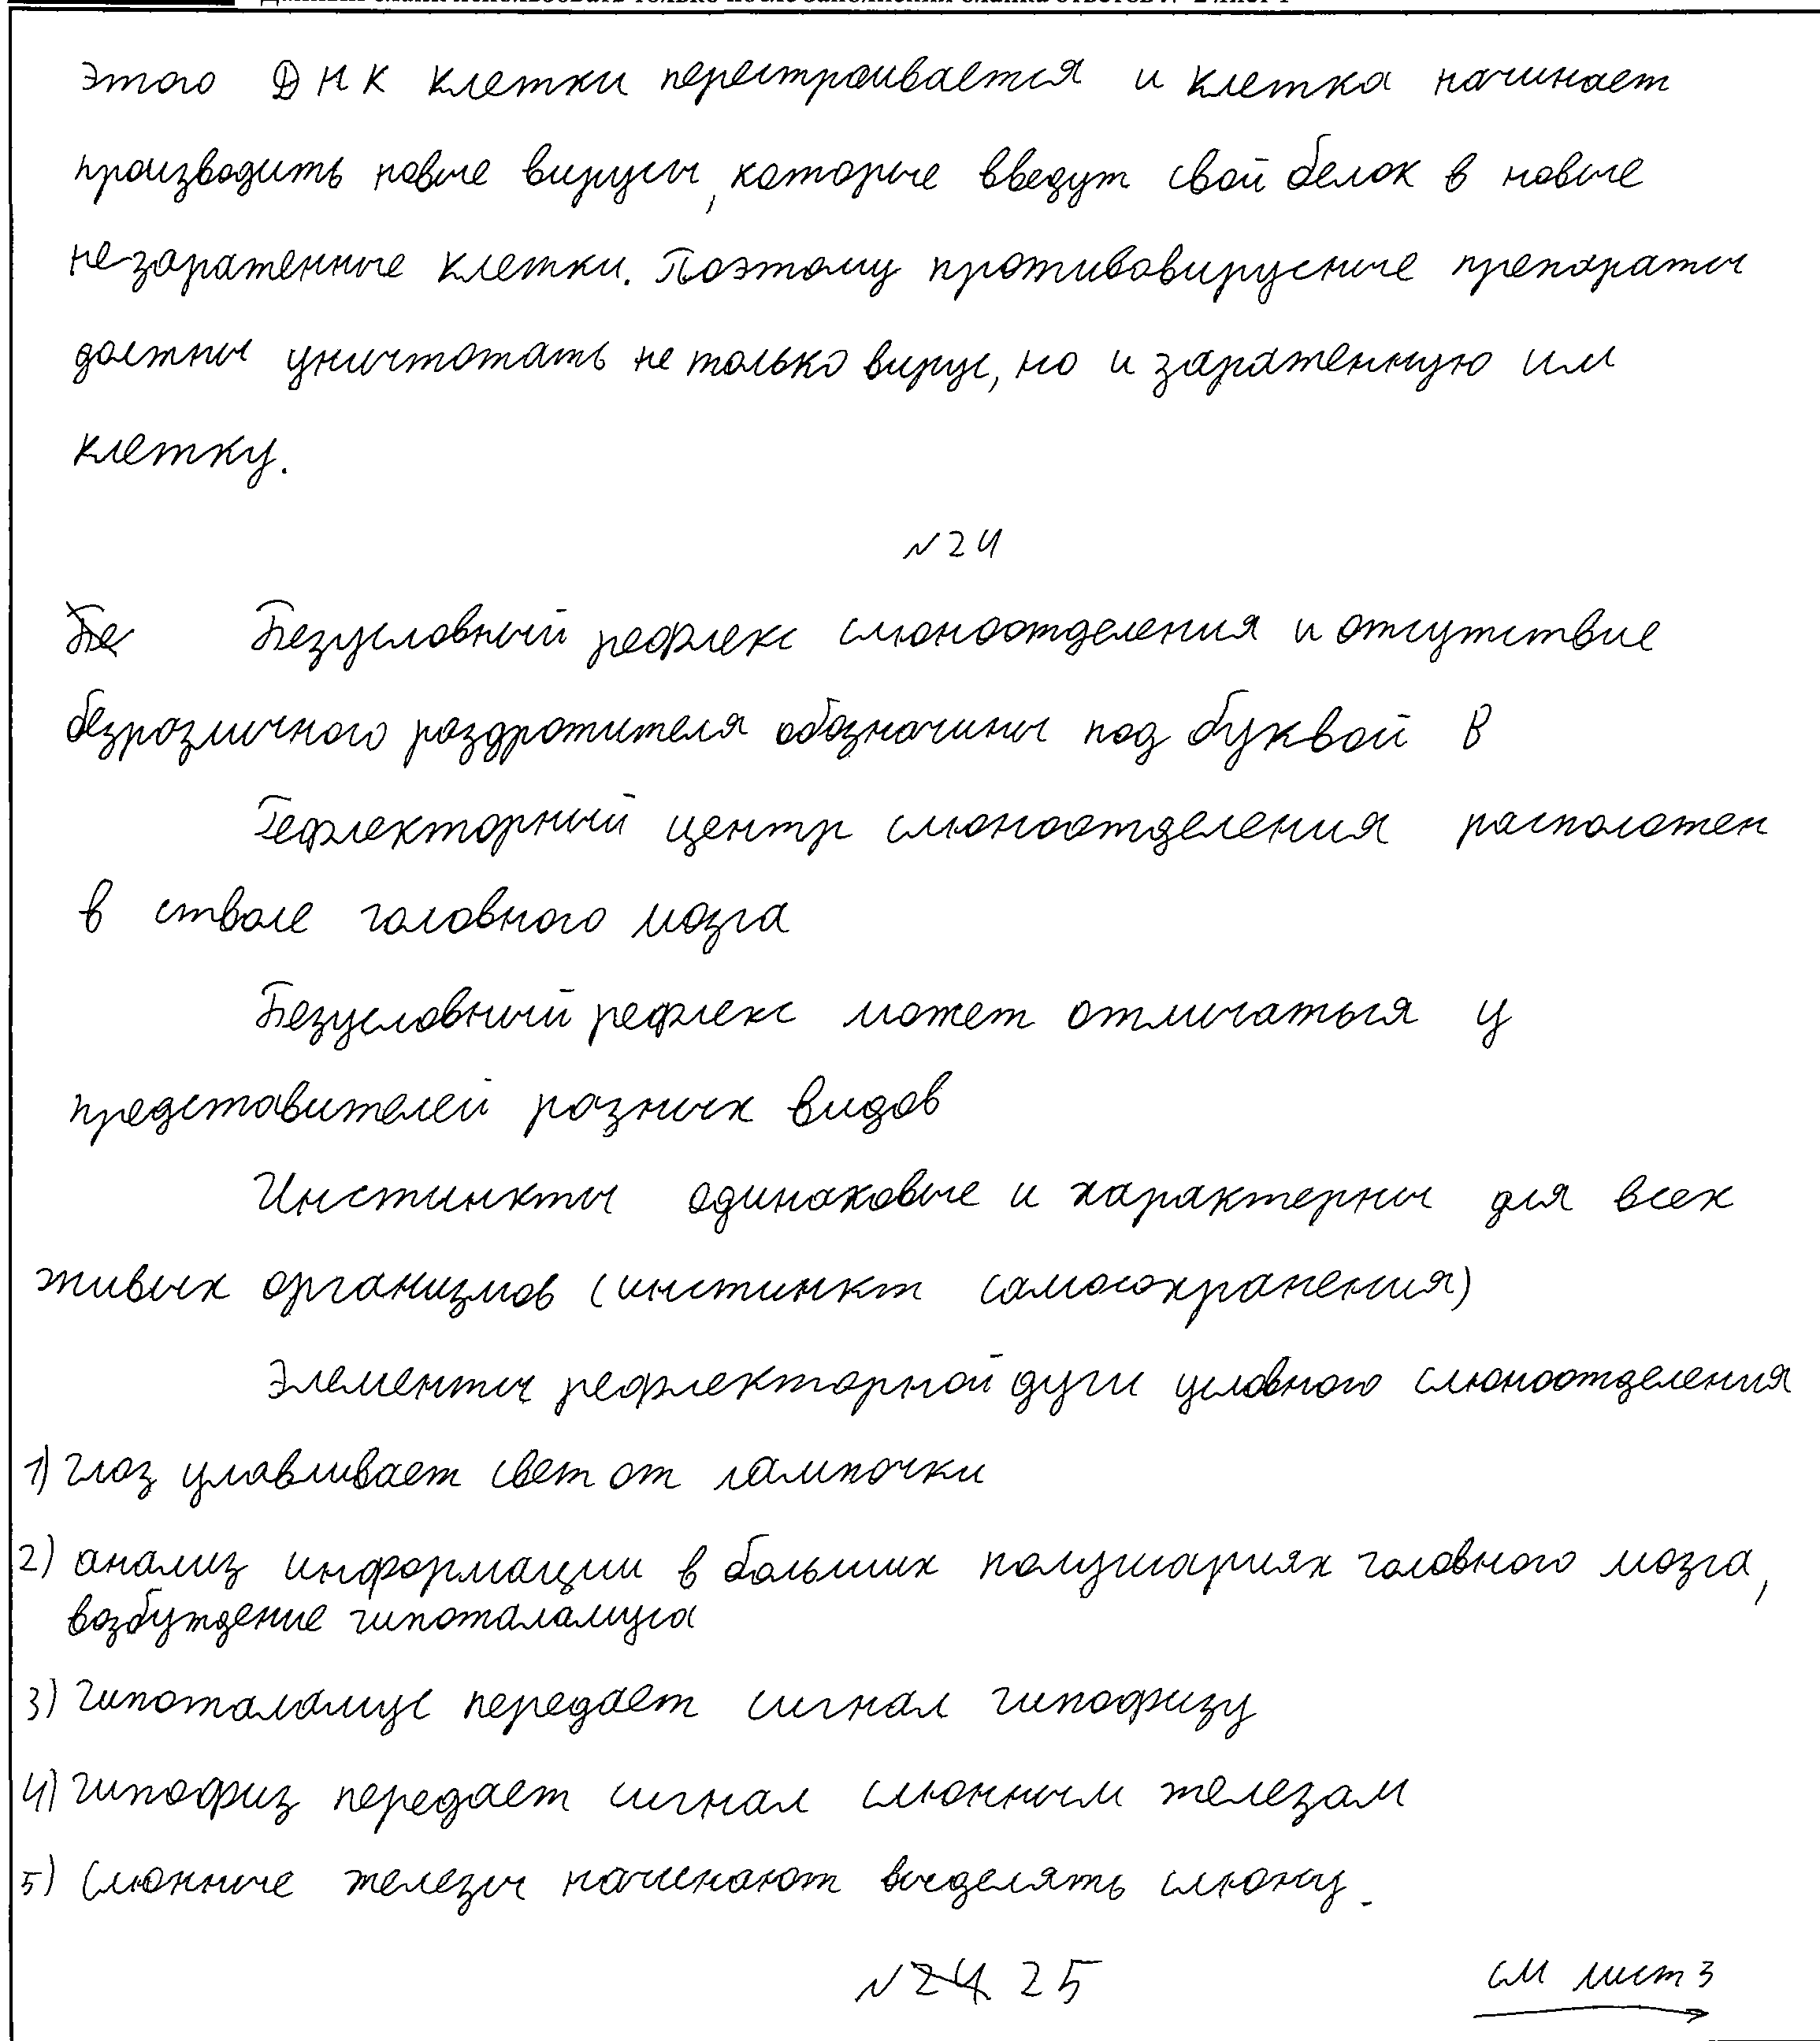 этого ДНК клетки перестраивается и клетка начинает
производить новые вирусы, которые введут свой белок в новые
незараженные клетки. Поэтому противовирусные препараты
должны уничтожать не только вирус, но и зараженную им
клетку.
№24
Бе Безусловный рефлекс слюноотделения и отсутствие
безразличного раздражителя обозначины под буквой В
Рефлекторный центр слюноотделения расположен
в стволе головного мозга
Безусловный рефлекс может отличаться у
представителей разных видов
Инстинкты одинаковые и характерны для всех
живых организмов (инстинкт самосохранения)
Элементы рефлекторной дуги условного слюноотделения
1) глаз улавливает свет от лампочки
2) анализ информации в больших полушариях головного мозга,
возбуждение гипоталамуса
3) гипоталамус передает сигнал гипофизу
4) гипофиз передает сигнал слюнным железам
5) Слюнные железы начинают выделять слюну.
№24 25
см лист 3